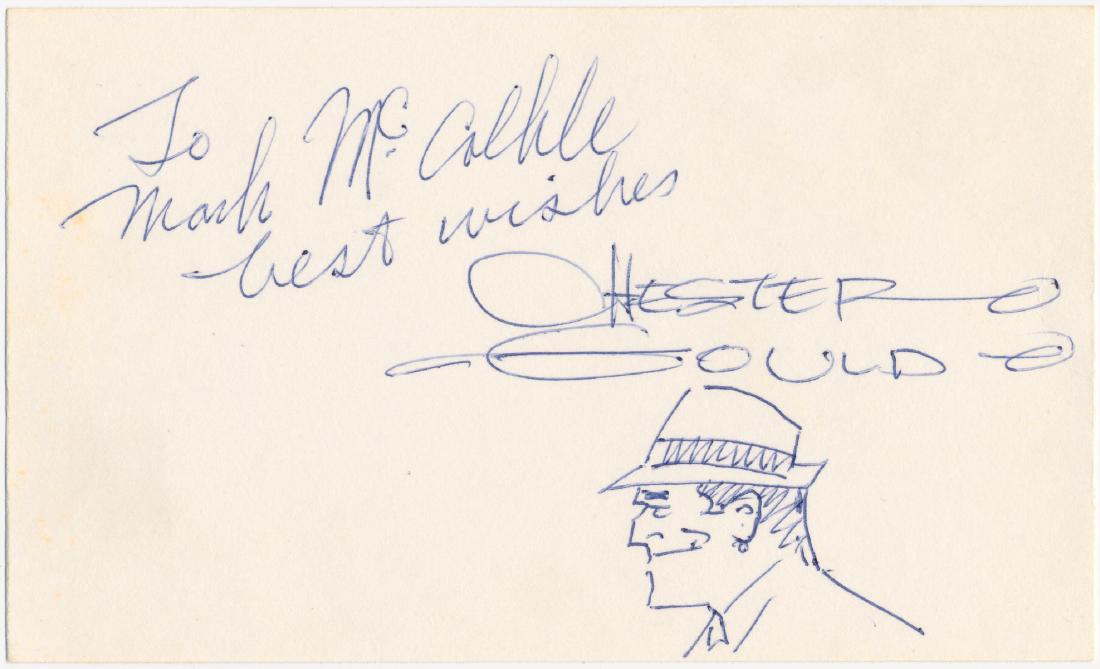 To
Mark Mc.
best wishes
CHESTER
GOULD